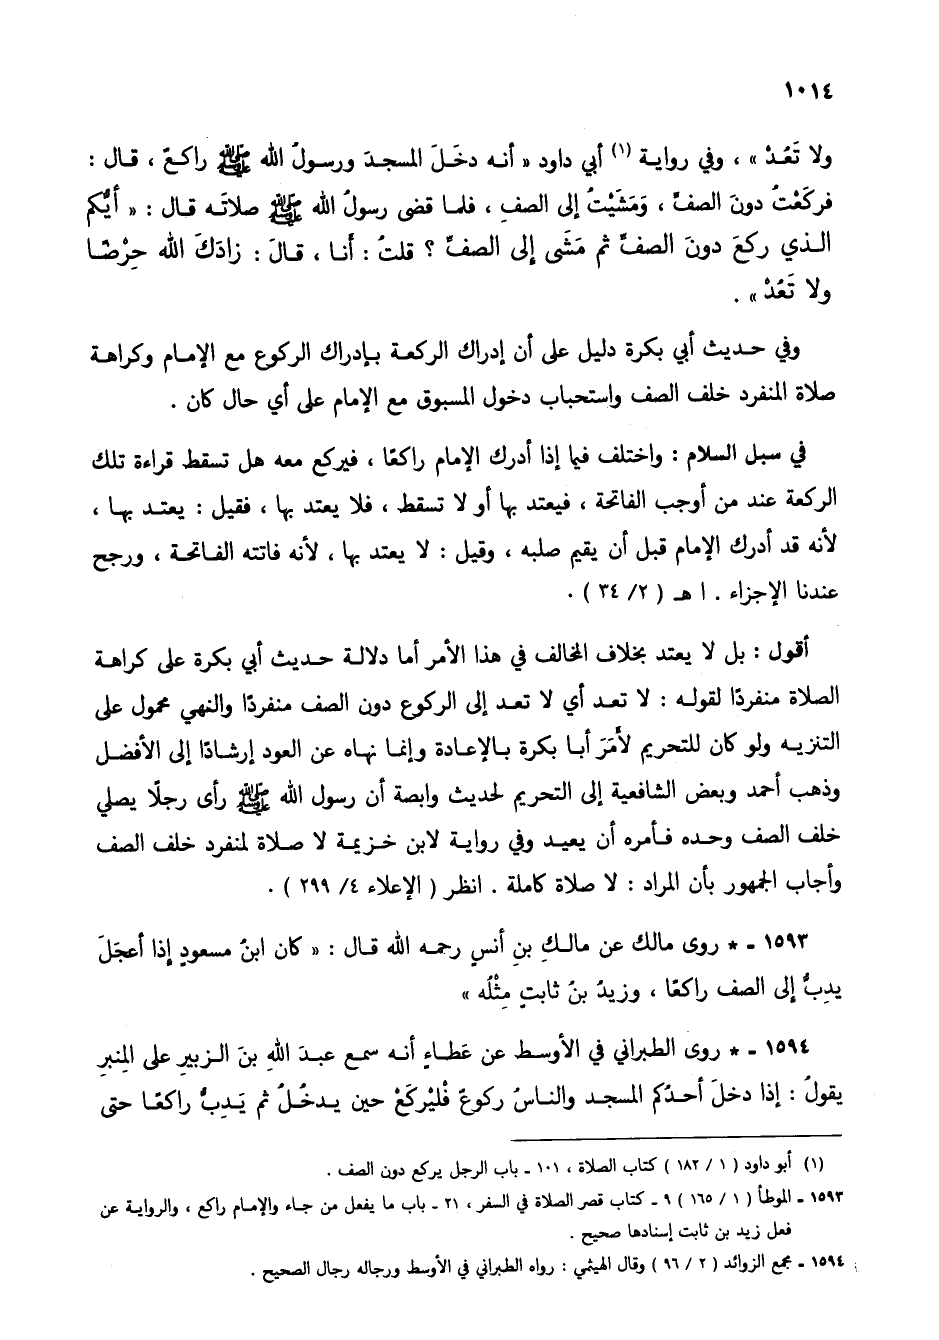 ١٠١٤
ولا تَعُدْ » ، وفي رواية (١) أبي داود « أنه دخَلَ المسجدَ ورسولُ الله ﷺ راكعٌ ، قال :
فركَعْتُ دونَ الصفِّ ، وَمَشَيْتُ إلى الصفِ ، فلما قضى رسولُ الله ﷺ صلاتَه قال : « أيُّكم
الذي ركعَ دونَ الصفِّ ثم مَشَى إلى الصفِّ ؟ قلتُ : أنا ، قالَ : زادَكَ الله حِرْصًا
ولا تَعُدْ » .
وفي حديث أبي بكرة دليل على أن إدراك الركعة بإدراك الركوع مع الإمام وكراهة
صلاة المنفرد خلف الصف واستحباب دخول المسبوق مع الإمام على أي حال كان .
في سبل السلام : واختلف فيما إذا أدرك الإمام راكعًا ، فيركع معه هل تسقط قراءة تلك
الركعة عند من أوجب الفاتحة ، فيعتد بها أو لا تسقط ، فلا يعتد بها ، فقيل : يعتد بها ،
لأنه قد أدرك الإمام قبل أن يقيم صلبه ، وقيل : لا يعتد بها ، لأنه فاتته الفاتحة ، ورجح
عندنا الإجزاء . ا هـ ( ٢/ ٣٤ ) .
أقول : بل لا يعتد بخلاف المخالف في هذا الأمر أما دلالة حديث أبي بكرة على كراهة
الصلاة منفردًا لقوله : لا تعد أي لا تعد إلى الركوع دون الصف منفردًا والنهي محمول على
التنزيه ولو كان للتحريم لأَمَرَ أبا بكرة بالإعادة وإنما نهاه عن العود إرشادًا إلى الأفضل
وذهب أحمد وبعض الشافعية إلى التحريم لحديث وابصة أن رسول الله ﷺ رأى رجلًا يصلي
خلف الصف وحده فأمره أن يعيد وفي رواية لابن خزيمة لا صلاة لمنفرد خلف الصف
وأجاب الجمهور بأن المراد : لا صلاة كاملة . انظر ( الإعلاء ٤/ ٢٩٩ ) .
١٥٩٣ - * روى مالك عن مالكِ بنِ أنسٍ رحمه الله قال : « كان ابنُ مسعودٍ إذا أعجَلَ
يدِبُّ إلى الصف راكعًا ، وزيدُ بنُ ثابتٍ مِثْلُه »
١٥٩٤ - * روى الطبراني في الأوسط عن عَطاءٍ أنه سمع عبدَ اللهِ بنَ الزبيرِ على المِنبرِ
يقولُ : إذا دخلَ أحدُكم المسجد والناسُ ركوعٌ فلْيركَعْ حين يدخُلُ ثم يَدِبُّ راكعًا حتى
(١) أبو داود ( ١ / ١٨٢ ) كتاب الصلاة ، ١٠١ - باب الرجل يركع دون الصف .
١٥٩٣ - الموطأ ( ١ / ١٦٥ ) ٩ - كتاب قصر الصلاة في السفر ، ٢١ - باب ما يفعل من جاء والإمام راكع ، والرواية عن
فعل زيد بن ثابت إسنادها صحيح .
١٥٩٤ - مجمع الزوائد ( ٢ / ٩٦ ) وقال الهيثمي : رواه الطبراني في الأوسط ورجاله رجال الصحيح .